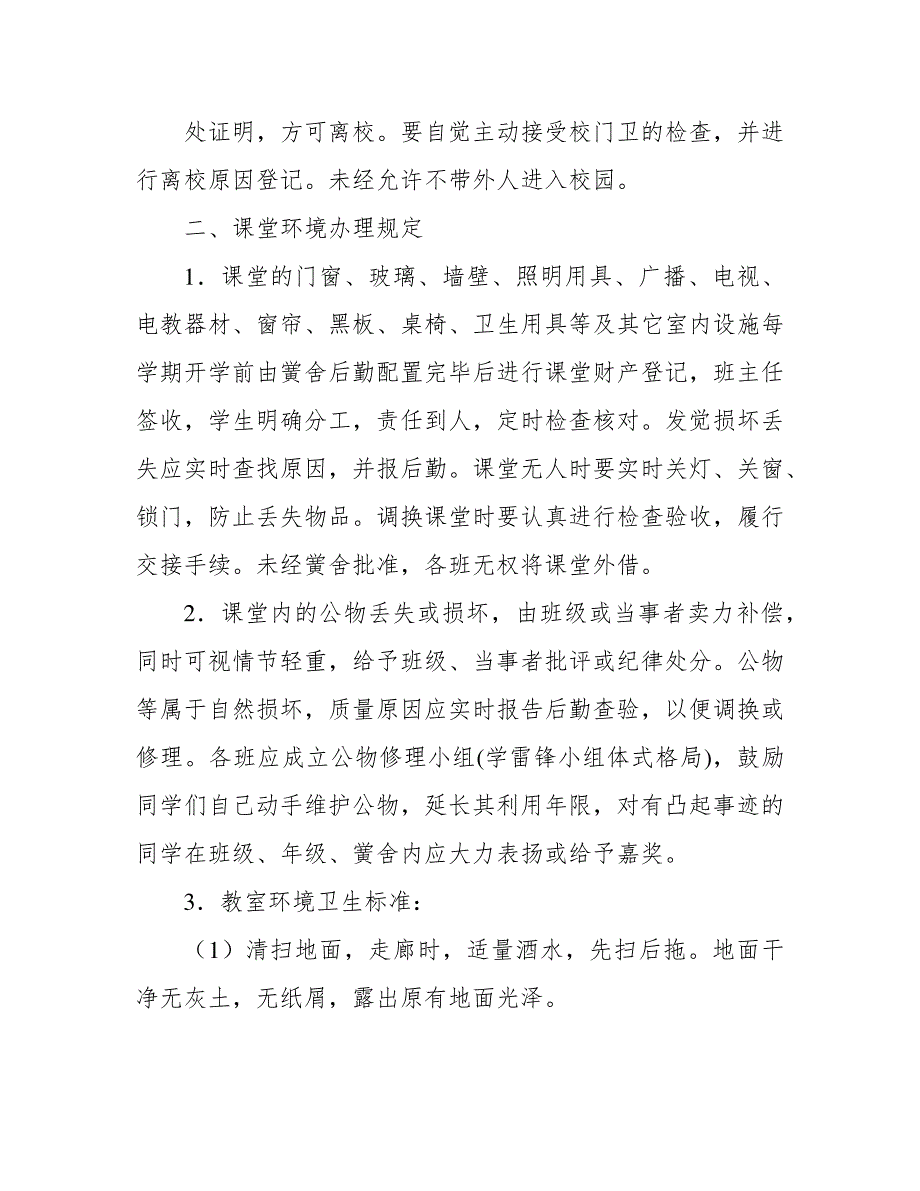 处证明，方可离校。要自觉主动接受校门卫的检查，并进
行离校原因登记。未经允许不带外人进入校园。
二、课堂环境办理规定
1．课堂的门窗、玻璃、墙壁、照明用具、广播、电视、
电教器材、窗帘、黑板、桌椅、卫生用具等及其它室内设施每
学期开学前由黉舍后勤配置完毕后进行课堂财产登记，班主任
签收，学生明确分工，责任到人，定时检查核对。发觉损坏丢
失应实时查找原因，并报后勤。课堂无人时要实时关灯、关窗、
锁门，防止丢失物品。调换课堂时要认真进行检查验收，履行
交接手续。未经黉舍批准，各班无权将课堂外借。
2．课堂内的公物丢失或损坏，由班级或当事者卖力补偿，
同时可视情节轻重，给予班级、当事者批评或纪律处分。公物
等属于自然损坏，质量原因应实时报告后勤查验，以便调换或
修理。各班应成立公物修理小组(学雷锋小组体式格局)，鼓励
同学们自己动手维护公物，延长其利用年限，对有凸起事迹的
同学在班级、年级、黉舍内应大力表扬或给予嘉奖。
3．教室环境卫生标准：
（1）清扫地面，走廊时，适量洒水，先扫后拖。地面干
净无灰土，无纸屑，露出原有地面光泽。